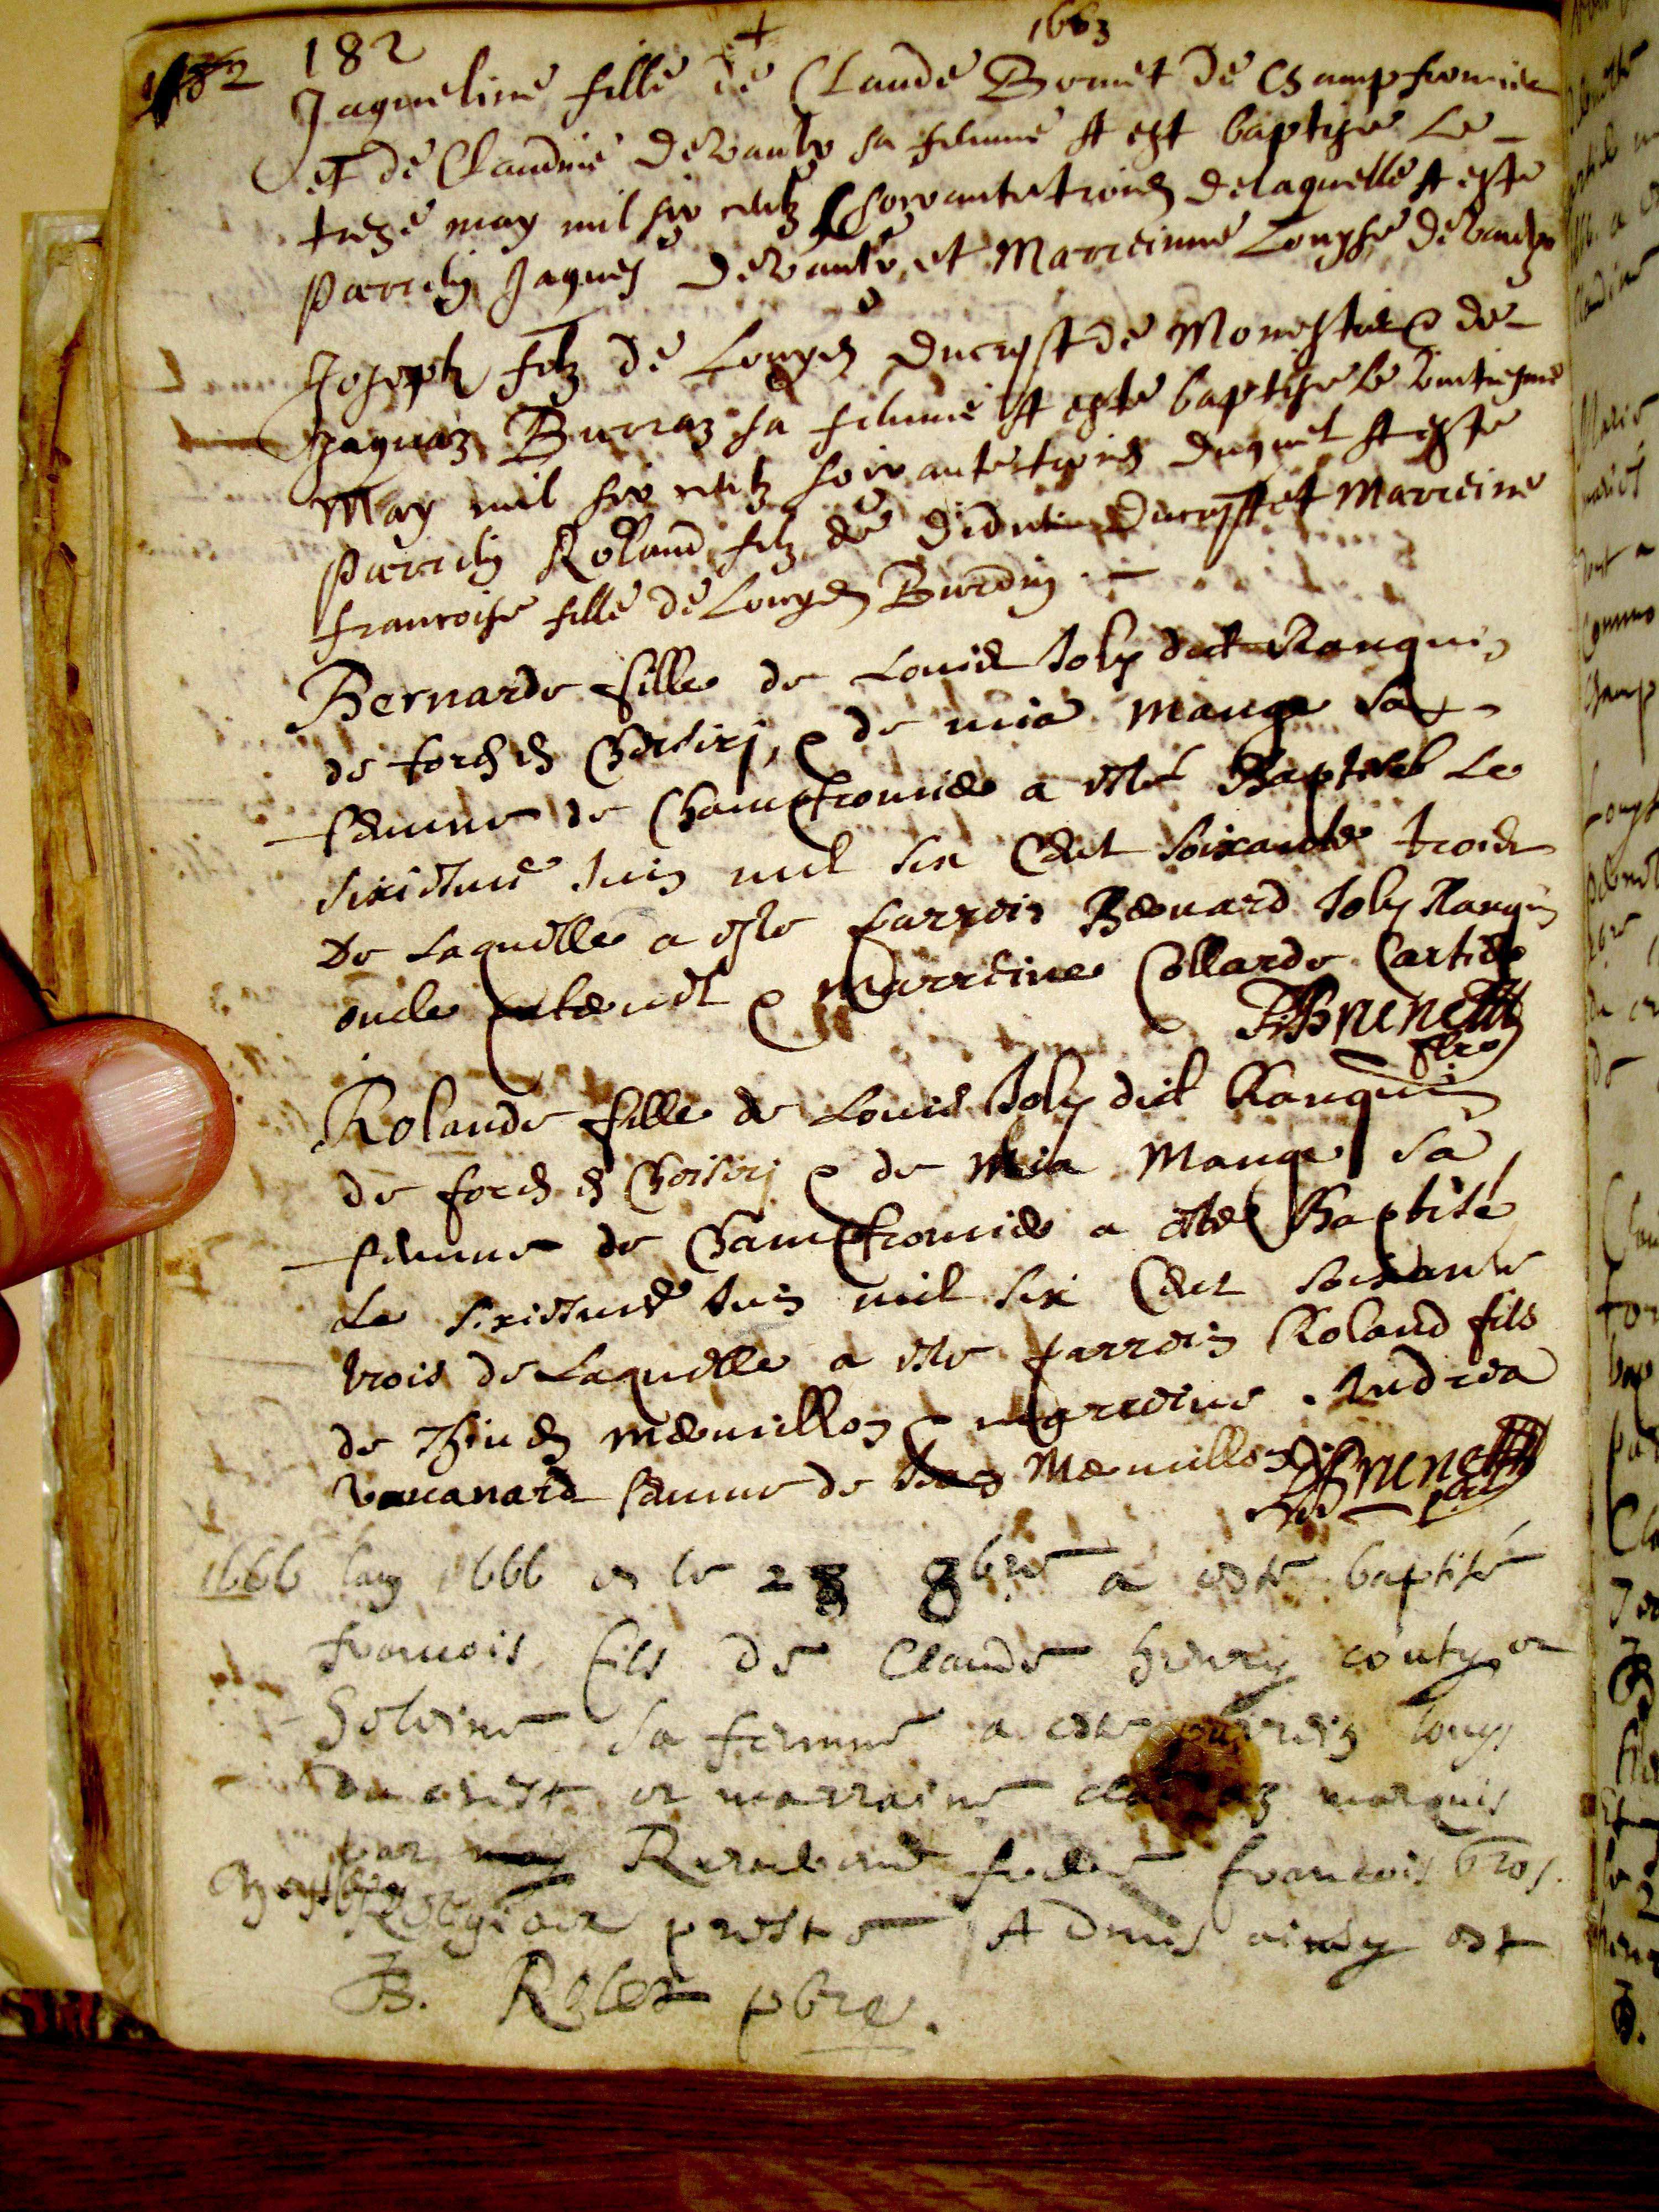 182 1663
Jaqueline fille de Claude Bornet de Champfromier
et de Claudine Devaulx sa femme A est baptise Le
treze may mil six centz soixantetrois delaquelle A este
Parrein Jaques Devaulx et Marreinne Louyse Devaulx
Joseph filz de Louys Ducrest de Monestier & de
Jaquaz Burraz sa femme A este baptise le vintiesme
May mil six centz soixantetrois duquel A este
Parrein Roland filz de Ducrest et Marreine
francoise fille de Louys Burdin
Bernarde fille de Louis Joly dict Ranquin
de forens Cheisirj, & de mia Mange sa
femme de Champfromier a esté Baptisée Le
sixiesme Juin mil six Cent soixante trois
De Laquelle a este parrein Bernard Joly Ranquin
oncle & Marreine Collarde
Brunet
pbre
Rolande fille de Louis Joly dict Ranquin
de forens Choisirj & de Mia Mange sa
femme de Champfromier a esté Baptisée
Le sixiesme Juin mil six Cent soixante
trois de Laquelle a este parrein Roland fils
de Thiven Mermillon & marreine Andrea
femme de Mermillon
Brunet
pbre
1666 lan 1666 et le 28 8bre a este baptisé
francois fils de Claude henry couty et
sa femme a este parrein louys
Ducrest et marraine marquis
par Reverend francois Bros.
prestre A dmis ainsy est
B. Rolet pbre.